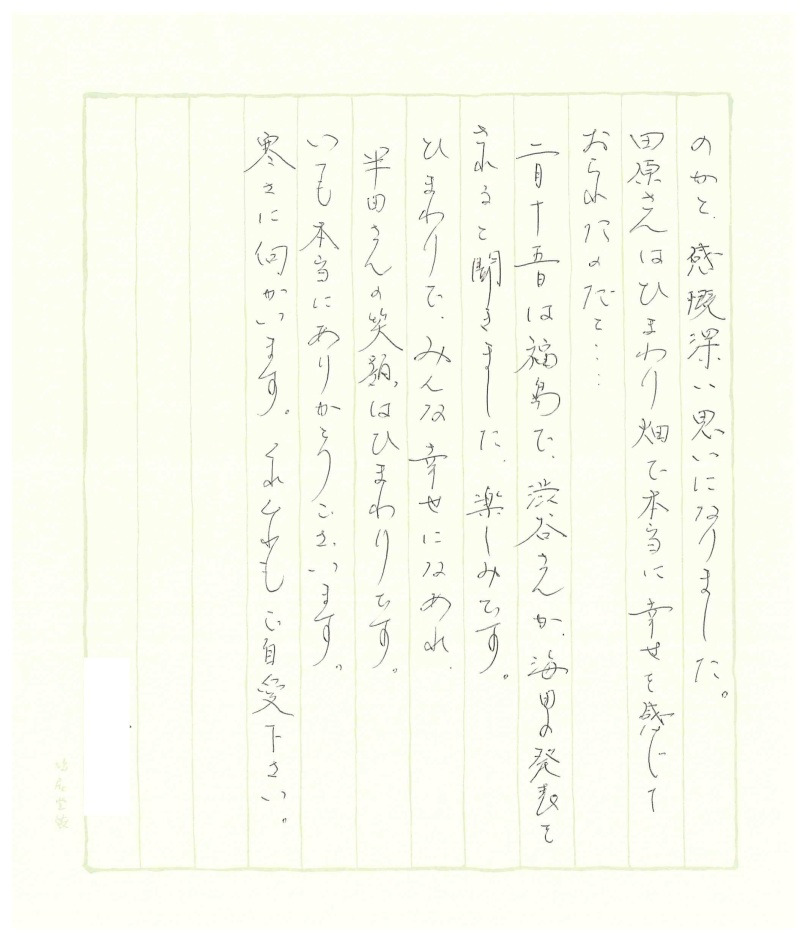 のかと、感慨深い思いになりました。
田原さんはひまわり畑で本当に幸せを感じて
おられたのだと……
二月十五日は福島で、渋谷さんが、海里の発表を
されると聞きました。楽しみです。
ひまわりで、みんな幸せになあれ。
半田さんの笑顔はひまわりです。
いつも本当にありがとうございます。
寒さに向かいます。くれぐれもご自愛下さい。
鳩居堂製